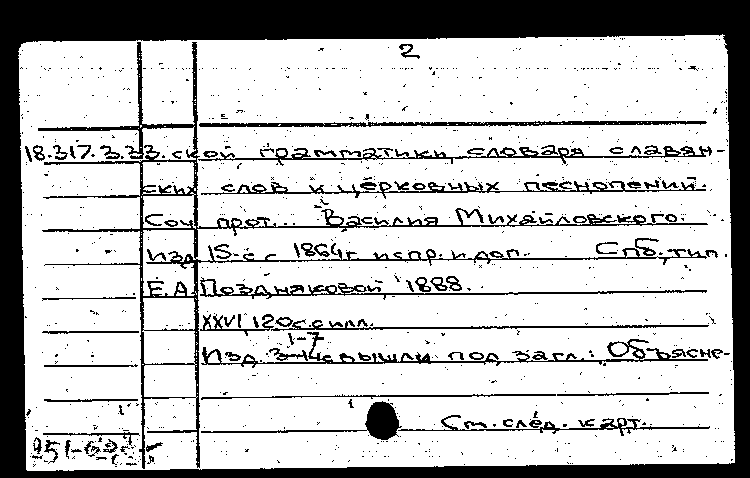 2
18.317.3.33. ской грамматики, словаря славян-
ских слов и церковных песнопений.
Соч. прот... Василия Михайловского.
Изд. 15-е с 1864г. испр. и доп. Спб., тип.
Е.А. Поздняковой, 1888.
XXVI, 120с. с илл.
1-7
Изд. вышли под загл.: Объясне-
См. след. карт.